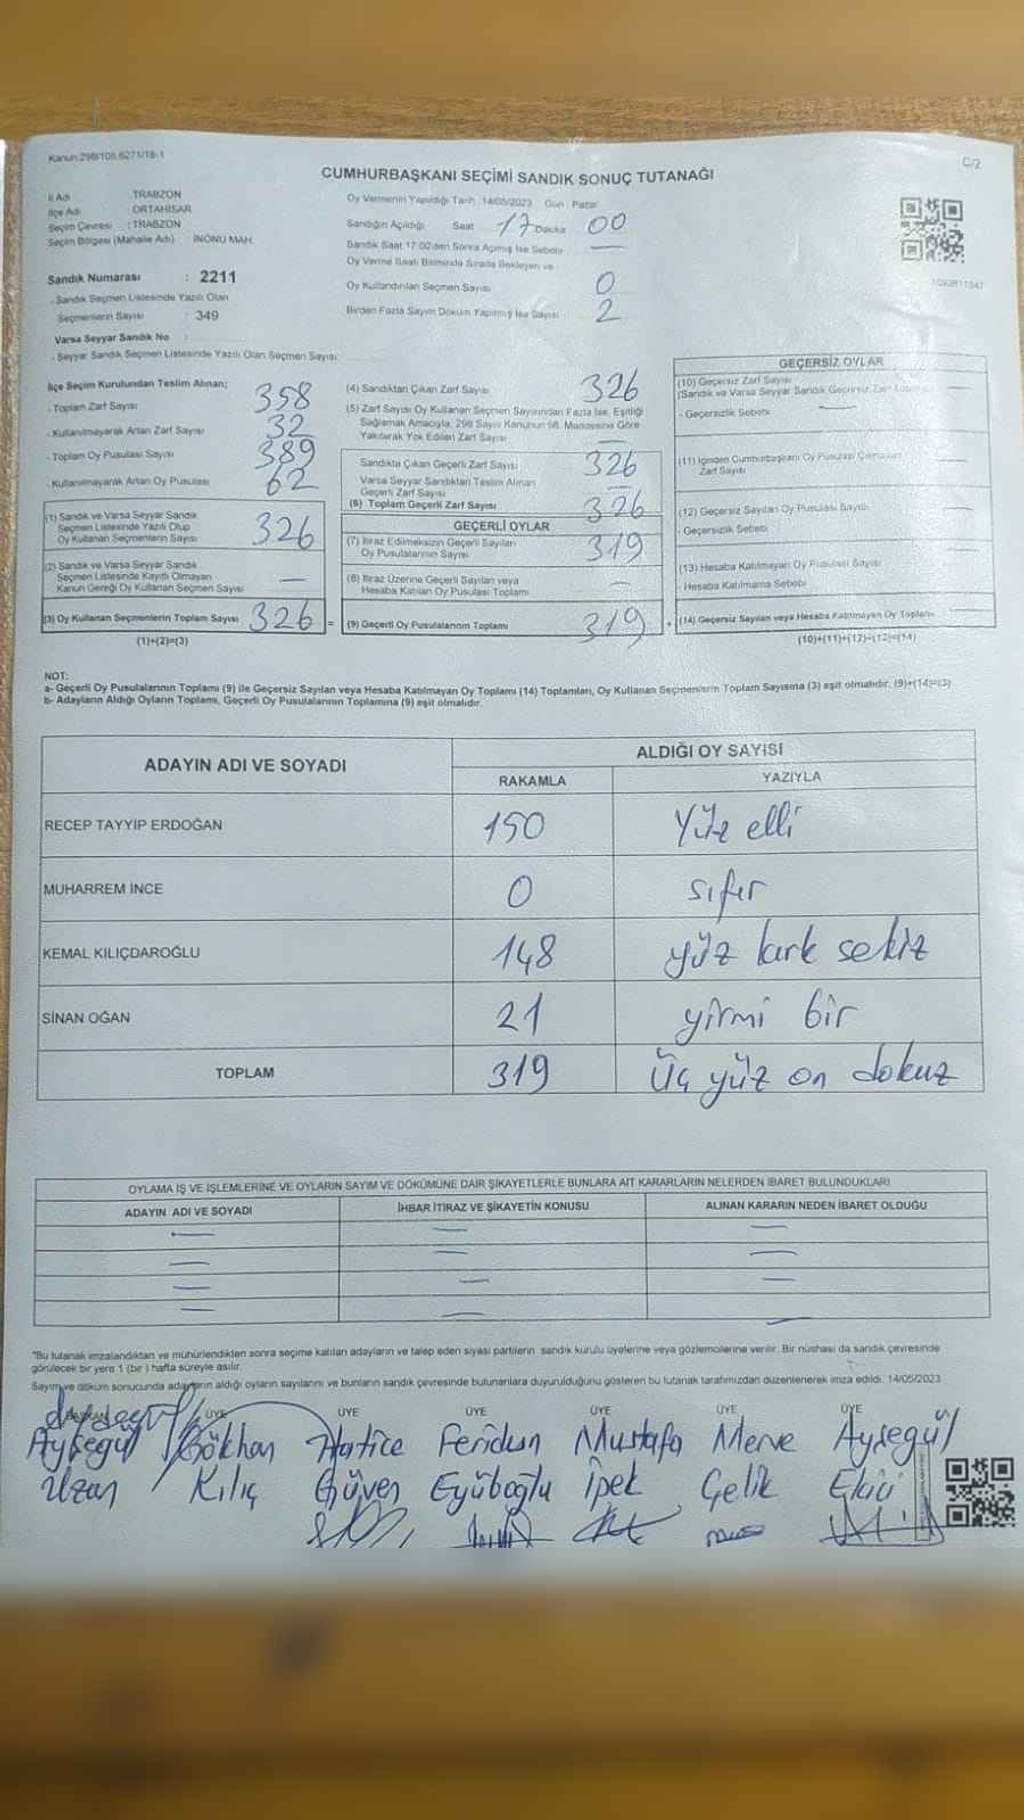 Kanun:298/105,6271/18-1
C/2
CUMHURBAŞKANI SEÇİMİ SANDIK SONUÇ TUTANAĞI
İl Adı : TRABZON
İlçe Adı : ORTAHİSAR
Seçim Çevresi : TRABZON
Seçim Bölgesi (Mahalle Adı) : İNÖNÜ MAH.
Oy Vermenin Yapıldığı Tarih : 14/05/2023 Gün : Pazar
Sandığın Açıldığı Saat 17 Dakika 00
Sandık Saat 17:00'den Sonra Açılmış İse Sebebi —
Oy Verme Saati Bitiminde Sırada Bekleyen ve
Oy Kullandırılan Seçmen Sayısı 0
Birden Fazla Sayım Döküm Yapılmış İse Sayısı 2
Sandık Numarası : 2211
- Sandık Seçmen Listesinde Yazılı Olan
Seçmenlerin Sayısı : 349
Varsa Seyyar Sandık No :
- Seyyar Sandık Seçmen Listesinde Yazılı Olan Seçmen Sayısı
İlçe Seçim Kurulundan Teslim Alınan;
- Toplam Zarf Sayısı 358
- Kullanılmayarak Artan Zarf Sayısı 32
- Toplam Oy Pusulası Sayısı 389
- Kullanılmayarak Artan Oy Pusulası 62
(1) Sandık ve Varsa Seyyar Sandık
Seçmen Listesinde Yazılı Olup
Oy Kullanan Seçmenlerin Sayısı 326
(2) Sandık ve Varsa Seyyar Sandık
Seçmen Listesinde Kayıtlı Olmayan
Kanun Gereği Oy Kullanan Seçmen Sayısı —
(3) Oy Kullanan Seçmenlerin Toplam Sayısı 326 =
(1)+(2)=(3)
(4) Sandıktan Çıkan Zarf Sayısı 326
(5) Zarf Sayısı Oy Kullanan Seçmen Sayısından Fazla İse, Eşitliği
Sağlamak Amacıyla, 298 Sayılı Kanunun 98. Maddesine Göre
Yakılarak Yok Edilen Zarf Sayısı —
Sandıkta Çıkan Geçerli Zarf Sayısı 326
Varsa Seyyar Sandıktan Teslim Alınan
Geçerli Zarf Sayısı —
(6) Toplam Geçerli Zarf Sayısı 326
GEÇERLİ OYLAR
(7) İtiraz Edilmeksizin Geçerli Sayılan
Oy Pusulalarının Sayısı 319
(8) İtiraz Üzerine Geçerli Sayılan veya
Hesaba Katılan Oy Pusulası Toplamı —
(9) Geçerli Oy Pusulalarının Toplamı 319 +
GEÇERSİZ OYLAR
(10) Geçersiz Zarf Sayısı
(Sandık ve Varsa Seyyar Sandık Geçersiz Zarf Toplamı) —
- Geçersizlik Sebebi —
(11) İçinden Cumhurbaşkanı Oy Pusulası Çıkmayan
Zarf Sayısı —
(12) Geçersiz Sayılan Oy Pusulası Sayısı —
- Geçersizlik Sebebi
(13) Hesaba Katılmayan Oy Pusulası Sayısı —
- Hesaba Katılmama Sebebi
(14) Geçersiz Sayılan veya Hesaba Katılmayan Oy Toplamı —
(10)+(11)+(12)+(13)=(14)
NOT:
a- Geçerli Oy Pusulalarının Toplamı (9) ile Geçersiz Sayılan veya Hesaba Katılmayan Oy Toplamı (14) Toplamları, Oy Kullanan Seçmenlerin Toplam Sayısına (3) eşit olmalıdır. (9)+(14)=(3)
b- Adayların Aldığı Oyların Toplamı, Geçerli Oy Pusulalarının Toplamına (9) eşit olmalıdır.
ADAYIN ADI VE SOYADI
ALDIĞI OY SAYISI
RAKAMLA YAZIYLA
RECEP TAYYİP ERDOĞAN 150 Yüz elli
MUHARREM İNCE 0 sıfır
KEMAL KILIÇDAROĞLU 148 yüz kırk sekiz
SİNAN OĞAN 21 yirmi bir
TOPLAM 319 Üç yüz on dokuz
OYLAMA İŞ VE İŞLEMLERİNE VE OYLARIN SAYIM VE DÖKÜMÜNE DAİR ŞİKAYETLERLE BUNLARA AİT KARARLARIN NELERDEN İBARET BULUNDUKLARI
ADAYIN ADI VE SOYADI İHBAR İTİRAZ VE ŞİKAYETİN KONUSU ALINAN KARARIN NEDEN İBARET OLDUĞU
— — —
— — —
— — —
— — —
"Bu tutanak imzalandıktan ve mühürlendikten sonra seçime katılan adayların ve talep eden siyasi partilerin sandık kurulu üyelerine veya gözlemcilerine verilir. Bir nüshası da sandık çevresinde
görülecek bir yere 1 (bir) hafta süreyle asılır.
Sayım ve döküm sonucunda adayların aldığı oyların sayılarını ve bunların sandık çevresinde bulunanlara duyurulduğunu gösteren bu tutanak tarafımızdan düzenlenerek imza edildi. 14/05/2023
BAŞKAN ÜYE ÜYE ÜYE ÜYE ÜYE ÜYE
Ayşegül Gökhan Hatice Feridun Mustafa Merve Ayşegül
Uzan Kılıç Güven Eyüboğlu İpek Çelik Ekici